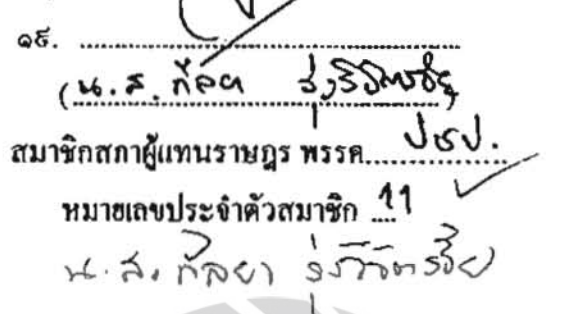 ๑๕. ................................................
(น.ส. กัลยา รุ่งวิจิตรชัย)
สมาชิกสภาผู้แทนราษฎร พรรค ปชป.
หมายเลขประจำตัวสมาชิก 11
น.ส. กัลยา รุ่งวิจิตรชัย